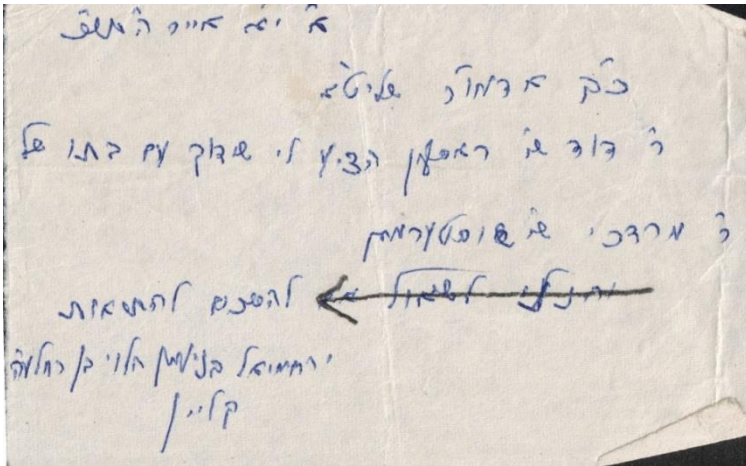 א' י"א אייר ה'תש"כ
כ"ק אדמו"ר שליט"א
ר' דוד שי' ראסקין הציע לי שדוך עם בתו של
ר' מרדכי שי' שוסטערמאן
והנני לשאול אם להסכים להתראות
ירחמיאל בנימין הלוי בן
קליין